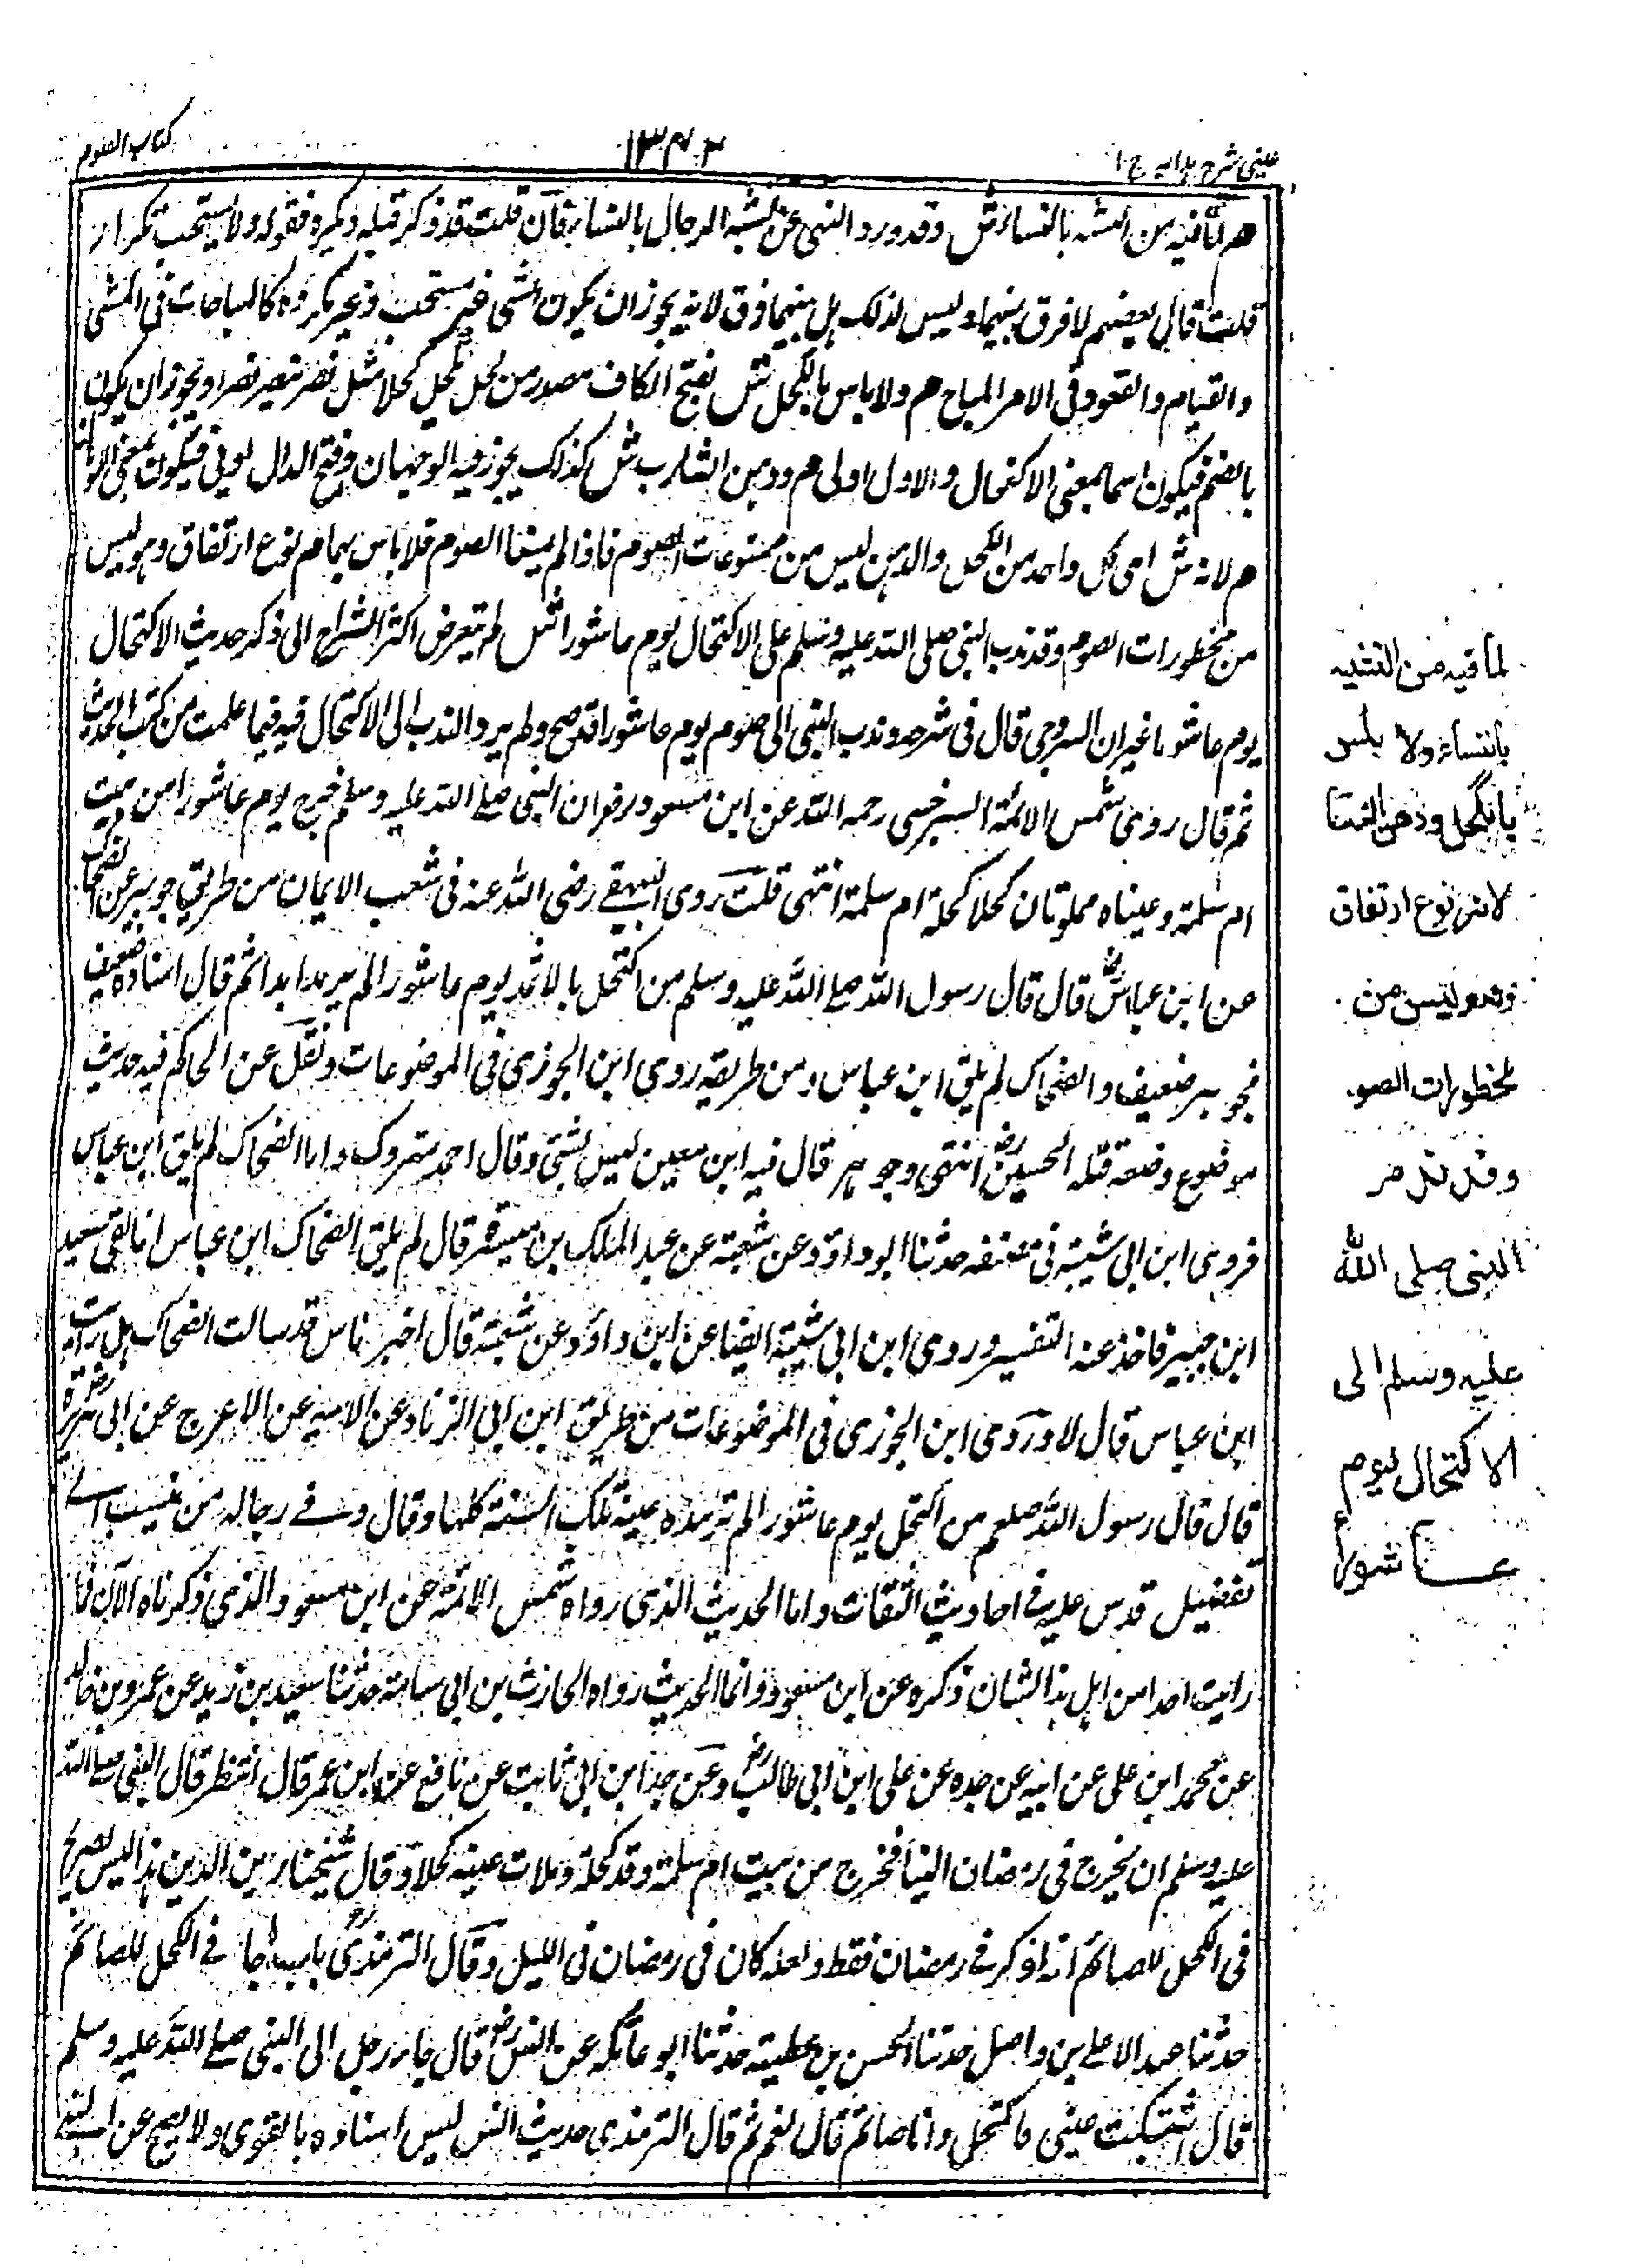 عینی شرح ہدایہ ج ۱
۱۳۴۲
کتاب الصوم
هم لما فیه من التشبه بالنساء ش وقد ورد النهی عن تشبه الرجال بالنساء فان قلت قد ذکر قبله ویکره فقوله ولا یستحب تکرار
قلت قال بعضهم لا فرق بینهما ولیس کذلک بل بینهما فرق لانه یجوز ان یکون الشی غیر مستحب وغیر مکروه کالمباحات فی المشی
والقیام والقعود فی الامر المباح هم ولا باس بالکحل ش بفتح الکاف مصدر من کحل یکحل کحلا مثل نصر ینصر نصرا ویجوز ان یکون
بالضم فیکون اسما بمعنی الاکتحال والاول اولی هم ودهن الشارب ش کذلک یجوز فیه الوجهان وفتح الدال فیکون بمعنی
هم لانه ش ای کل واحد من الکحل والدهن لیس من ممنوعات الصوم فاذا لم یمنعا الصوم فلا باس بهما هم نوع ارتفاق وهو لیس
من محظورات الصوم وقد ندب النبی صلی الله علیه وسلم علی الاکتحال یوم عاشورا ش لم یتعرض اکثر الشراح الی ذکر حدیث الاکتحال
یوم عاشورا غیر ان السروجی قال فی شرحه وندب النبی الی صوم یوم عاشورا قد صح ولم یرد الندب الی الاکتحال فیه فیما علمت من کتب الحدیث
ثم قال روی شمس الائمة السرخسی رحمه الله عن ابن مسعود رض ان النبی صلے الله علیه وسلم خرج یوم عاشورا من بیت
ام سلمة وعیناه مملوتان کحلا کحلته ام سلمة انتهی قلت روی البیهقے رضی الله عنه فی شعب الایمان من طریق جویبر عن الضحاک
عن ابن عباس رض قال قال رسول الله صلے الله علیه وسلم من اکتحل بالاثمد یوم عاشورا لم یرمد ابدا ثم قال اسناده ضعیف
فجویبر ضعیف والضحاک لم یلق ابن عباس ومن طریقه روی ابن الجوزی فی الموضوعات ونقل عن الحاکم فیه حدیث
موضوع وضعه قتلة الحسین رض انتهی وجویبر قال فیه ابن معین لیس بشی وقال احمد متروک واما الضحاک لم یلق ابن عباس
فروی ابن ابی شیبة فی مصنفه حدثنا ابو داؤد عن شعبة عن عبد الملک بن میسرة قال لم یلق الضحاک ابن عباس انما لقی سعید
ابن جبیر فاخذ عنه التفسیر وروی ابن ابی شیبة ایضا عن ابن داؤد عن شعبة قال اخبر ناس قد سالت الضحاک هل رایت
ابن عباس قال لا وروی ابن الجوزی فی الموضوعات من طریق ابن ابی الزناد عن ابیه عن الاعرج عن ابی هریرة رض
قال قال رسول الله صلعم من اکتحل یوم عاشورا لم ترمد عینه تلک السنة کلها وقال وفے رجاله من ینسب الے
تغفیل قدس علیه فے احادیث الثقات واما الحدیث الذی رواه شمس الائمة عن ابن مسعود الذی ذکرناه الآن فما
رایت احدا من اهل هذا الشان ذکره عن ابن مسعود وانما الحدیث رواه الحارث بن ابی سامة حدثنا سعید بن زید عن عمرو بن خالد
عن محمد ابن علی عن ابیه عن جده عن علی ابن ابی طالب رض وعن ابن ابی ثابت عن نافع عن ابن عمر قال انتظر قال النبی صلے الله
علیه وسلم ان یخرج فی رمضان الینا فخرج من بیت ام سلمة وقد کحلته وملات عینیه کحلا وقال شیخنا زین الدین هذا لیس بصریح
فی الکحل للصائم انه اذ ذکر فے رمضان فقط ولعله کان فی رمضان فی اللیل وقال الترمذی رح باب ما جاء فے الکحل للصائم
حدثنا عبد الاعلے بن واصل حدثنا الحسن بن عطیة حدثنا ابو عاتکة عن انس رض قال جاء رجل الی النبی صلے الله علیه وسلم
قال اشتکت عینی فاکتحل وانا صائم قال نعم ثم قال الترمذی حدیث انس لیس اسناده بالقوی ولا یصح عن النبے
لما فیه من التشبه
بالنساء ولا باس
بالکحل ودهن الشا
لانه نوع ارتفاق
وهو لیس من
محظورات الصو
وقد ندب
النبی صلی الله
علیه وسلم الی
الاکتحال یوم
عاشوراء